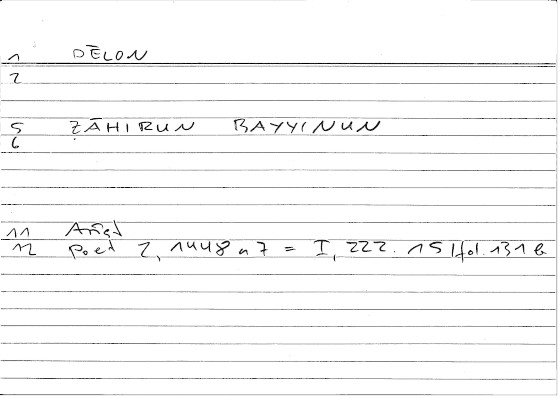 1 DĒLON
2
5 ẒĀHIRUN BAYYINUN
6
11 Arist
12 Poet 2, 1448 a 7 = I, 222.15/fol.131 b